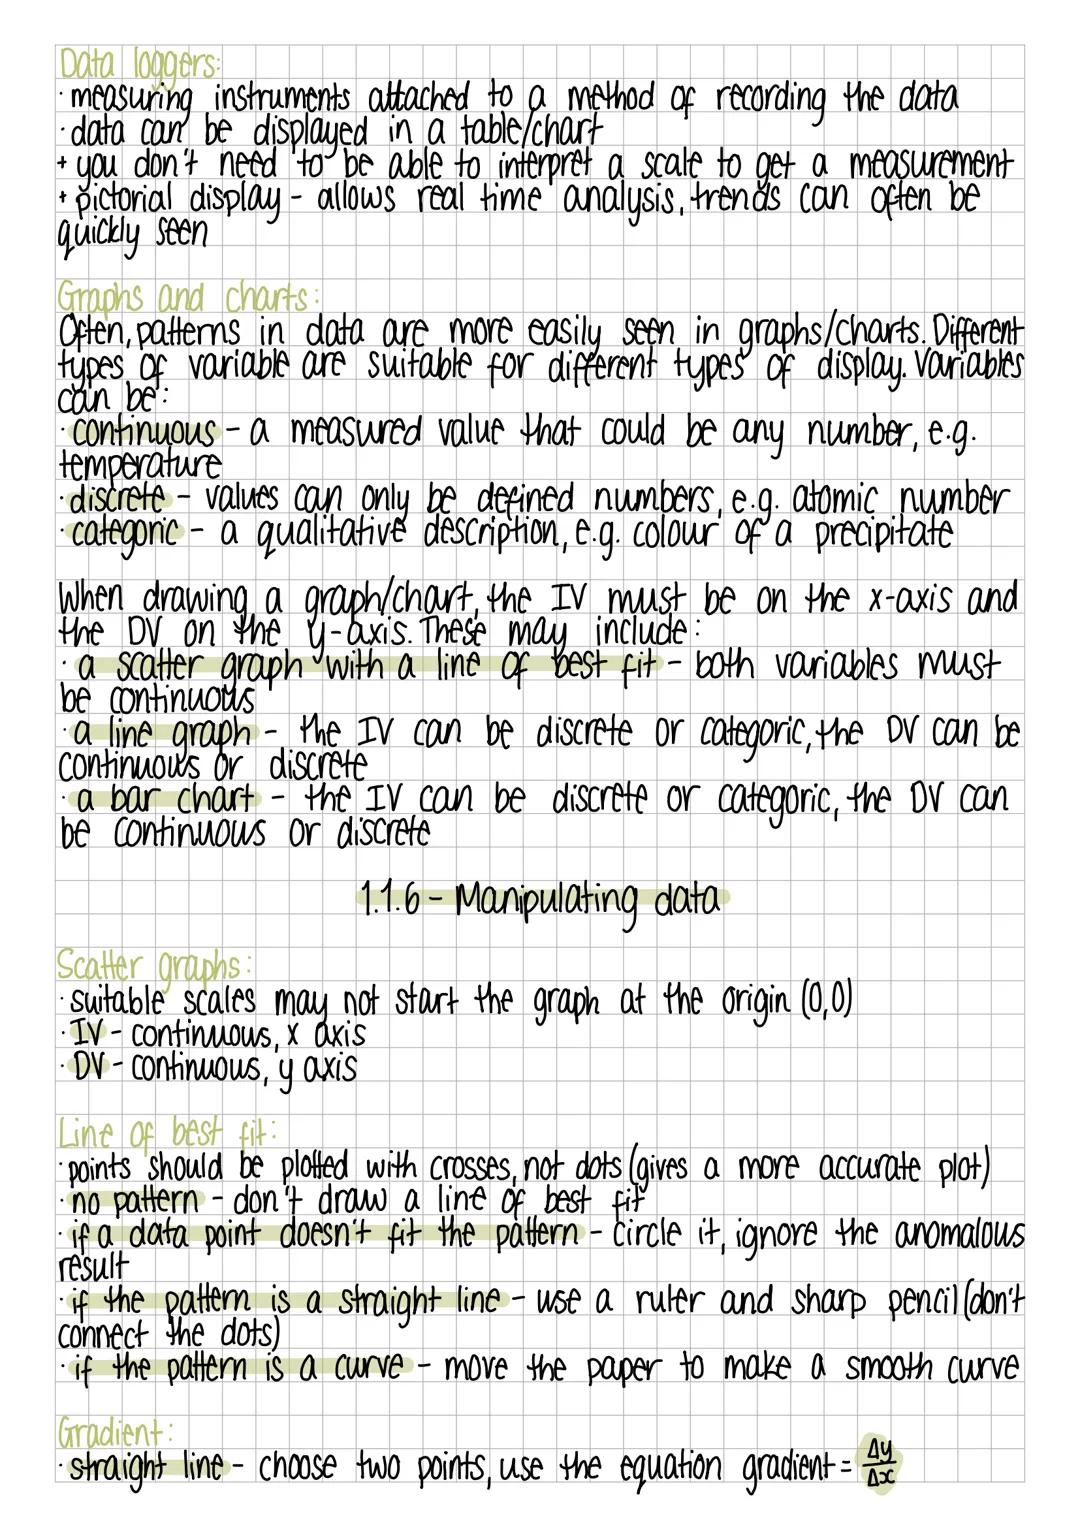 Data loggers:
· measuring instruments attached to a method of recording the data
· data can be displayed in a table/chart
+ you don't need to be able to interpret a scale to get a measurement
+ pictorial display - allows real time analysis, trends can often be
quickly seen
Graphs and charts:
Often, patterns in data are more easily seen in graphs/charts. Different
types of variable are suitable for different types of display. Variables
can be:
· continuous - a measured value that could be any number, e.g.
temperature
· discrete - values can only be defined numbers, e.g. atomic number
· categoric - a qualitative description, e.g. colour of a precipitate
When drawing a graph/chart, the IV must be on the x-axis and
the DV on the y-axis. These may include:
· a scatter graph with a line of best fit - both variables must
be continuous
· a line graph - the IV can be discrete or categoric, the DV can be
continuous or discrete
· a bar chart - the IV can be discrete or categoric, the DV can
be continuous or discrete
1.1.6 - Manipulating data
Scatter graphs:
· suitable scales may not start the graph at the origin (0,0)
· IV - continuous, x axis
· DV - continuous, y axis
Line of best fit:
· points should be plotted with crosses, not dots (gives a more accurate plot)
· no pattern - don't draw a line of best fit
· if a data point doesn't fit the pattern - circle it, ignore the anomalous
result
· if the pattern is a straight line - use a ruler and sharp pencil (don't
connect the dots)
· if the pattern is a curve - move the paper to make a smooth curve
Gradient:
· straight line - choose two points, use the equation gradient = Δy/Δx